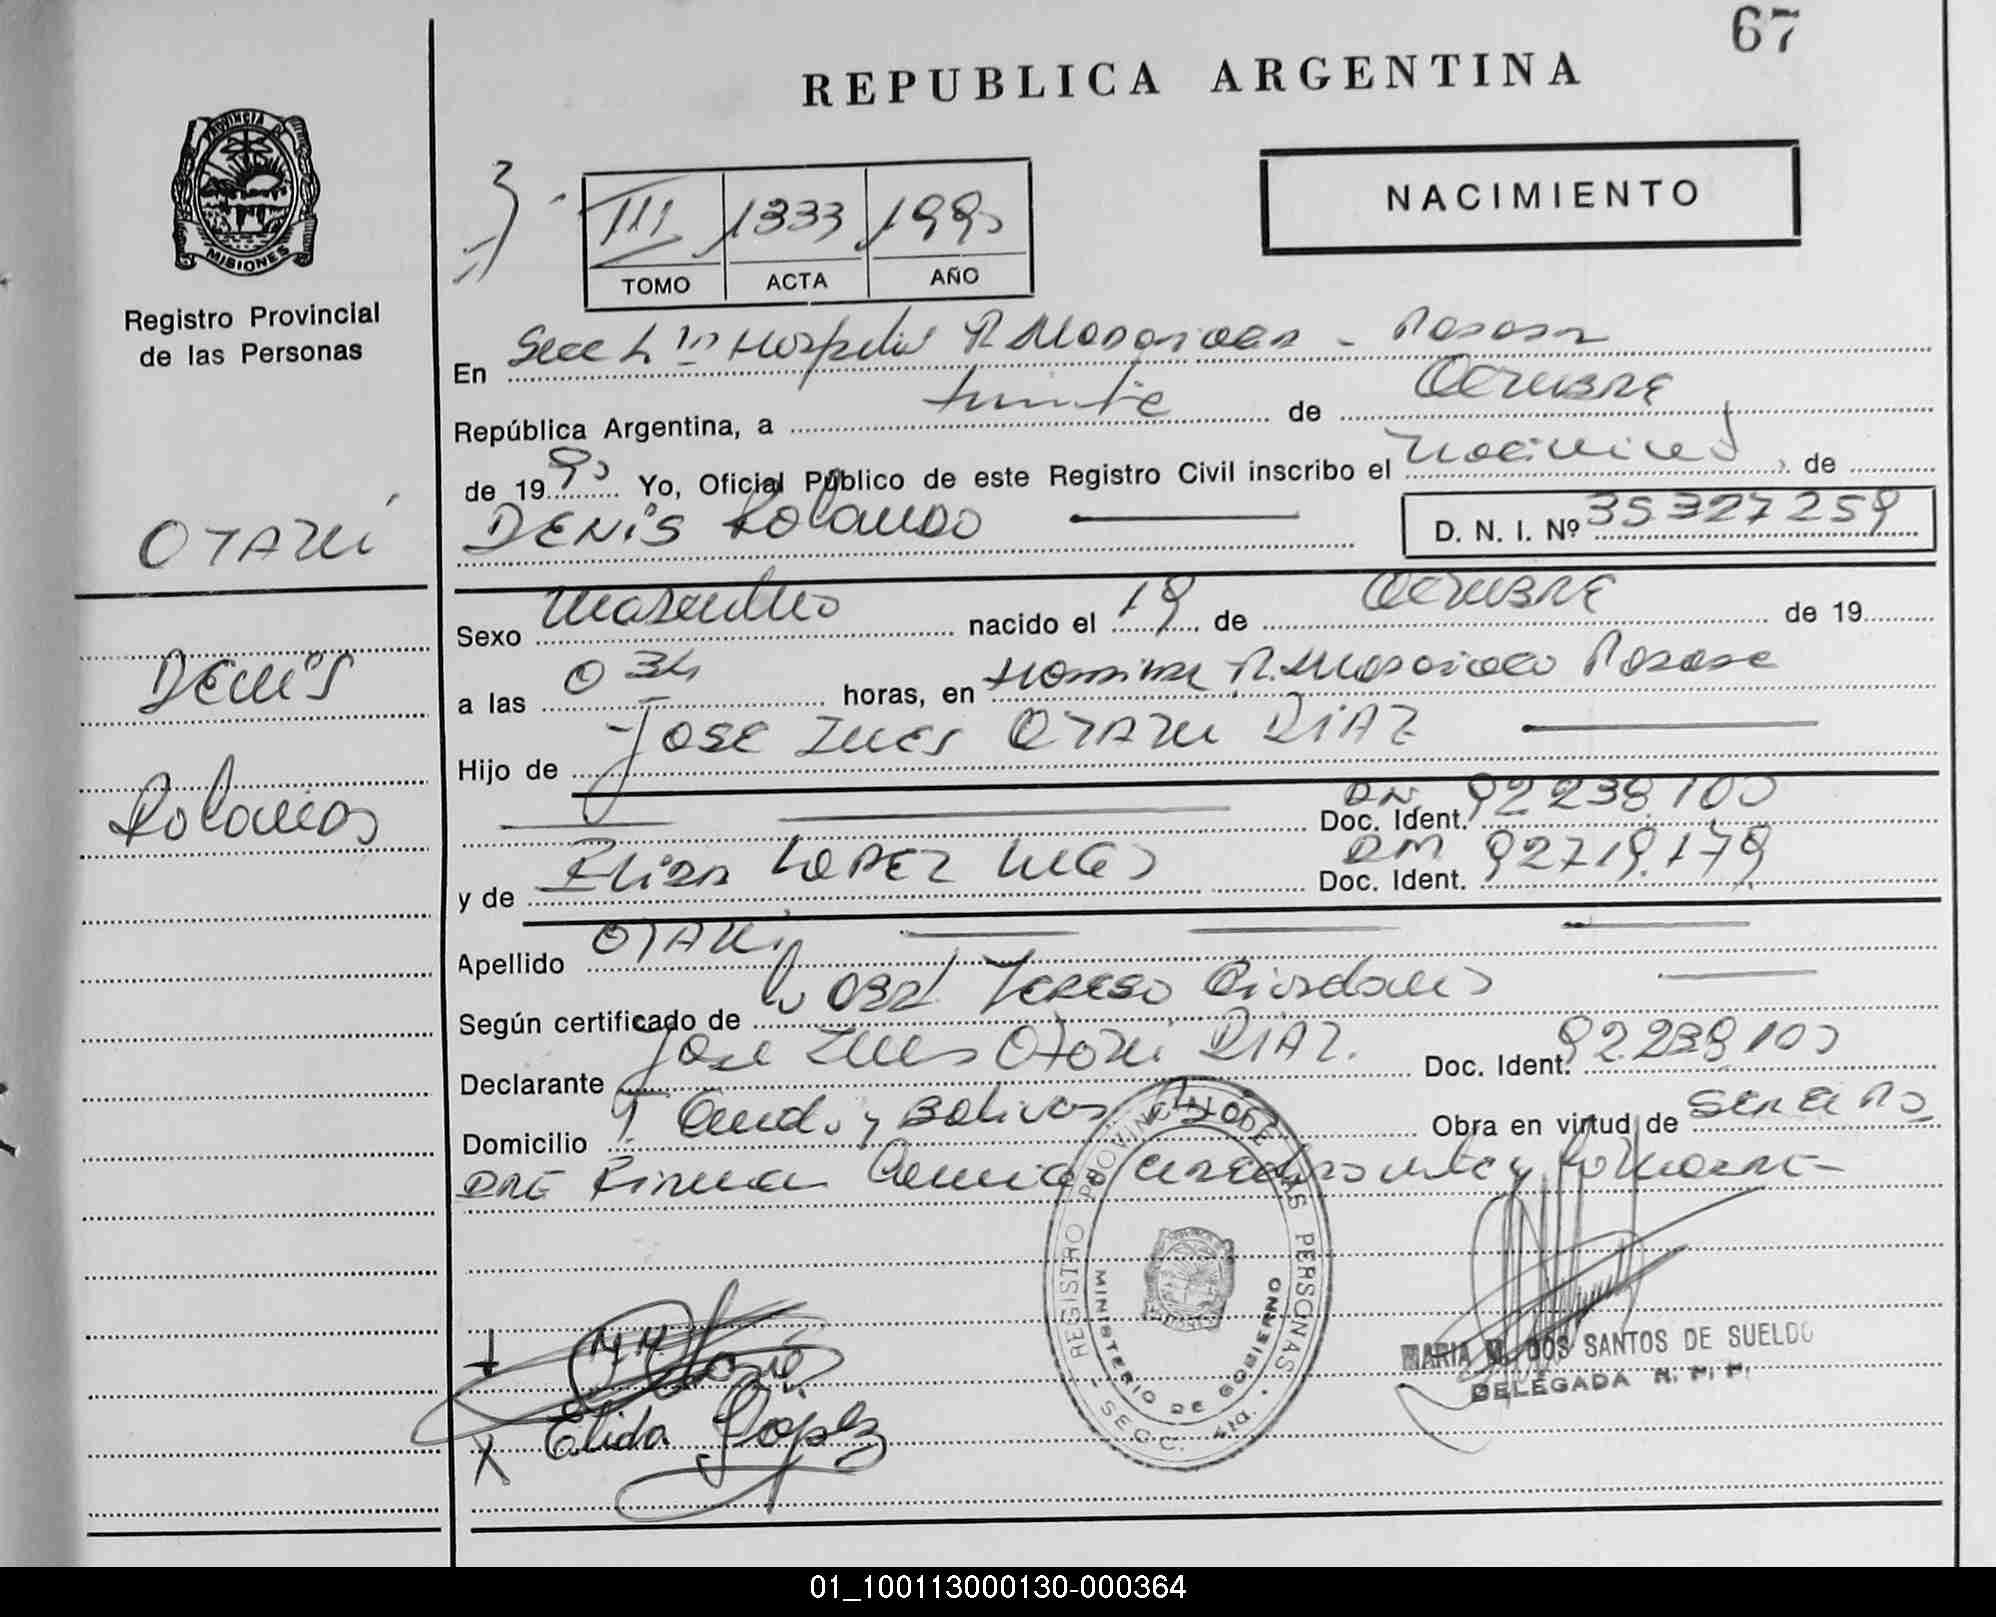 67
REPUBLICA ARGENTINA
NACIMIENTO
PROVINCIA DE
MISIONES
Registro Provincial
de las Personas
III 1333 1990
TOMO ACTA AÑO
En Secc Hospital R. Madariaga - Posadas
República Argentina, a veinte de Octubre
de 1990 Yo, Oficial Público de este Registro Civil inscribo el Nacimiento de
DENIS Rolando D. N. I. Nº 35327259
OTAZU
Sexo Masculino nacido el 19 de Octubre de 19
a las 0 34 horas, en Hospital R. Madariaga Posadas
Hijo de JOSE OTAZU DIAZ
Doc. Ident. 92239100
y de LOPEZ Doc. Ident. 92719.179
DENIS
Rolando
Apellido OTAZU
Según certificado de Obst. Teresa
Declarante Jose Otazu DIAZ. Doc. Ident. 92.239100
Domicilio y Bolivar Obra en virtud de ser el Pa
dre Firma
REGISTRO PROVINCIAL DE LAS PERSONAS
MINISTERIO DE GOBIERNO
- SECC. 4ta. -
Elida López
MARIA M. DOS SANTOS DE SUELDO
DELEGADA R. P. P.
01_100113000130-000364